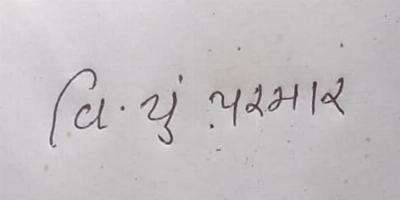 વિ. યું પરમાર